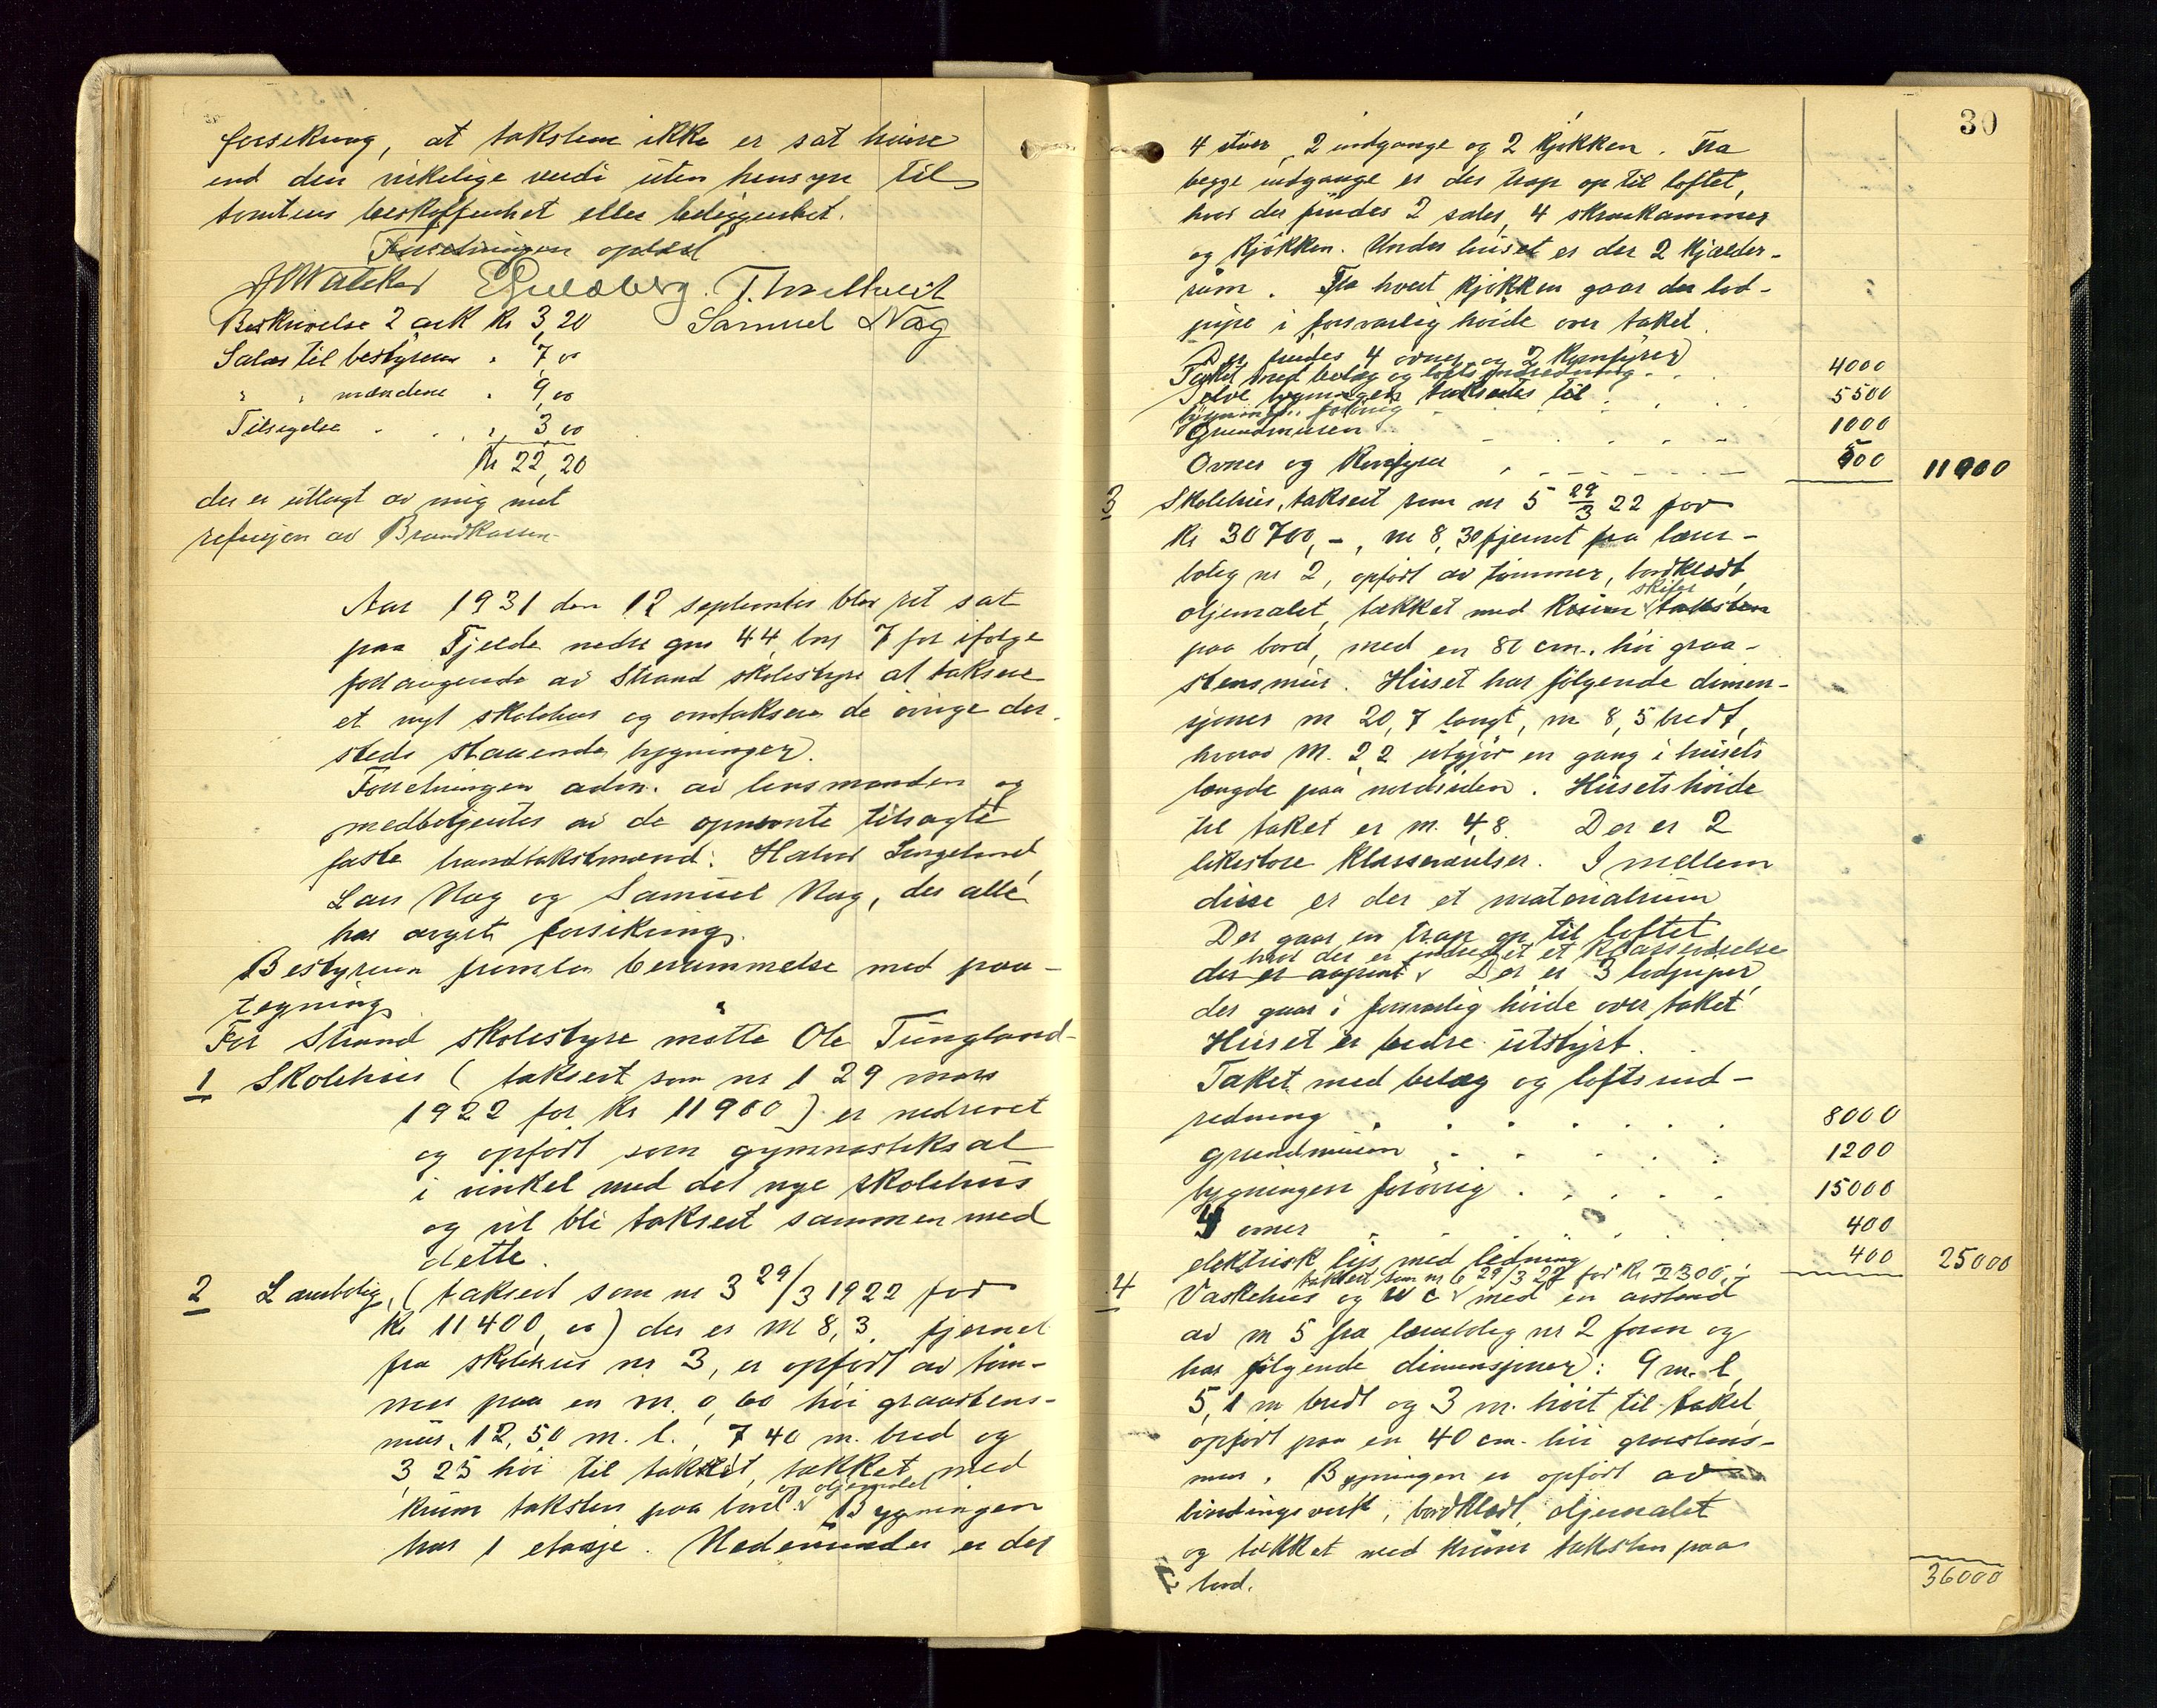 forsikring, at taksten ikke er sat høiere
end den virkelige verdi uten hensyn til
tomtens beskaffenhet eller beliggenhet.
Forretningen oplæst
Samuel Nag
Beskrivelse 2 ark Kr 3,20
Salær til bestyreren " 7,00
" " mændene " 9,00
Tilsigelse " 3 00
Kr 22,20
der er utlagt av mig mot
refusjon av Brandkassen
Aar 1931 den 12 september blev ret sat
paa Fjelde nedre gnr 44, bnr 7 for ifølge
forlangende av Strand skolestyre at taksere
et nyt skolehus og omtaksere de øvrige der
steds staaende bygninger.
Forretningen adm. av lensmanden og
medbetjentes av de opnævnte tilsagte
faste brandtakstmænd: Halvor Lingeland,
Lars Nag og Samuel Nag, der alle
har avgit forsikring.
Bestyreren fremla berammelse med paa-
tegning
For Strand skolestyre møtte Ole Tungland
1 Skolehus (taksert som nr 1 29 mars
1922 for Kr 11900) er nedrevet
og opført som gymnastiksal
i vinkel med det nye skolehus
og vil bli taksert sammen med
dette.
2 Lærerbolig, (taksert som nr 3 29/3 1922 for
Kr 11400,00) der er M 8,3 fjernet
fra skolehus nr 3, er opført av tøm-
mer paa en m. 0,60 høi graastens-
mur, 12,50 m. l., 7 40 m. bred og
3,25 høi til taket, tækket med
og oljemalet
krum taksten paa bord. Bygningen
har 1 etasje. Nedenunder er der
30
4 stuer, 2 indgange og 2 kjøkken. Fra
begge indgange er der trap op til loftet,
hvor der findes 2 saler, 4 skraakammer
og kjøkken. Under huset er der 2 kjælder-
rum. Fra hvert kjøkken gaar der lod-
pipe i forsvarlig høide over taket.
Der findes 4 ovner og 2 komfyrer
Taket med belæg og lofts indredning 4000
Selve bygningen takseres til 5500
bygningen forøvrig
Grundmuren 1000
Ovner og komfyrer 500 11000
3 Skolehus, taksert som nr 5 29/3 22 for
Kr 30700,-, m 8,30 fjernet fra lærer-
bolig nr 2, opført av tømmer, bordklædt,
skifer
oljemalet, tækket med krum taksten
paa bord, med en 80 cm. høi graa-
stensmur. Huset har følgende dimen-
sjoner m 20,7 langt, m 8,5 bredt,
hvorav M. 2,2 utgjør en gang i husets
længde paa nordsiden. Husets høide
til taket er m. 4,8. Der er 2
likestore klasseværelser. I mellem
disse er der et materialrum
Der gaar en trap op til loftet
hvor der er indredet et klasseværelse
der er Der er 3 lodpiper,
der gaar i forsvarlig høide over taket
Huset er bedre utstyrt.
Taket med belæg og lofts ind-
redning 8000
grundmuren 1200
bygningen forøvrig 15000
4 ovner 400
elektrisk lys med ledning 400 25000
taksert som nr 6 29/3 22 for Kr 2300,-
4 Vaskehus og W C med en avstand
av m 5 fra lærerbolig nr 2 foran og
har følgende dimensjoner: 9 m. l,
5,1 m bredt og 3 m. høit til taket,
opført paa en 40 cm. høi graastens-
mur. Bygningen er opført av
bindingsverk, bordklædt, oljemalet
og tækket med krum taksten paa
bord.
36000